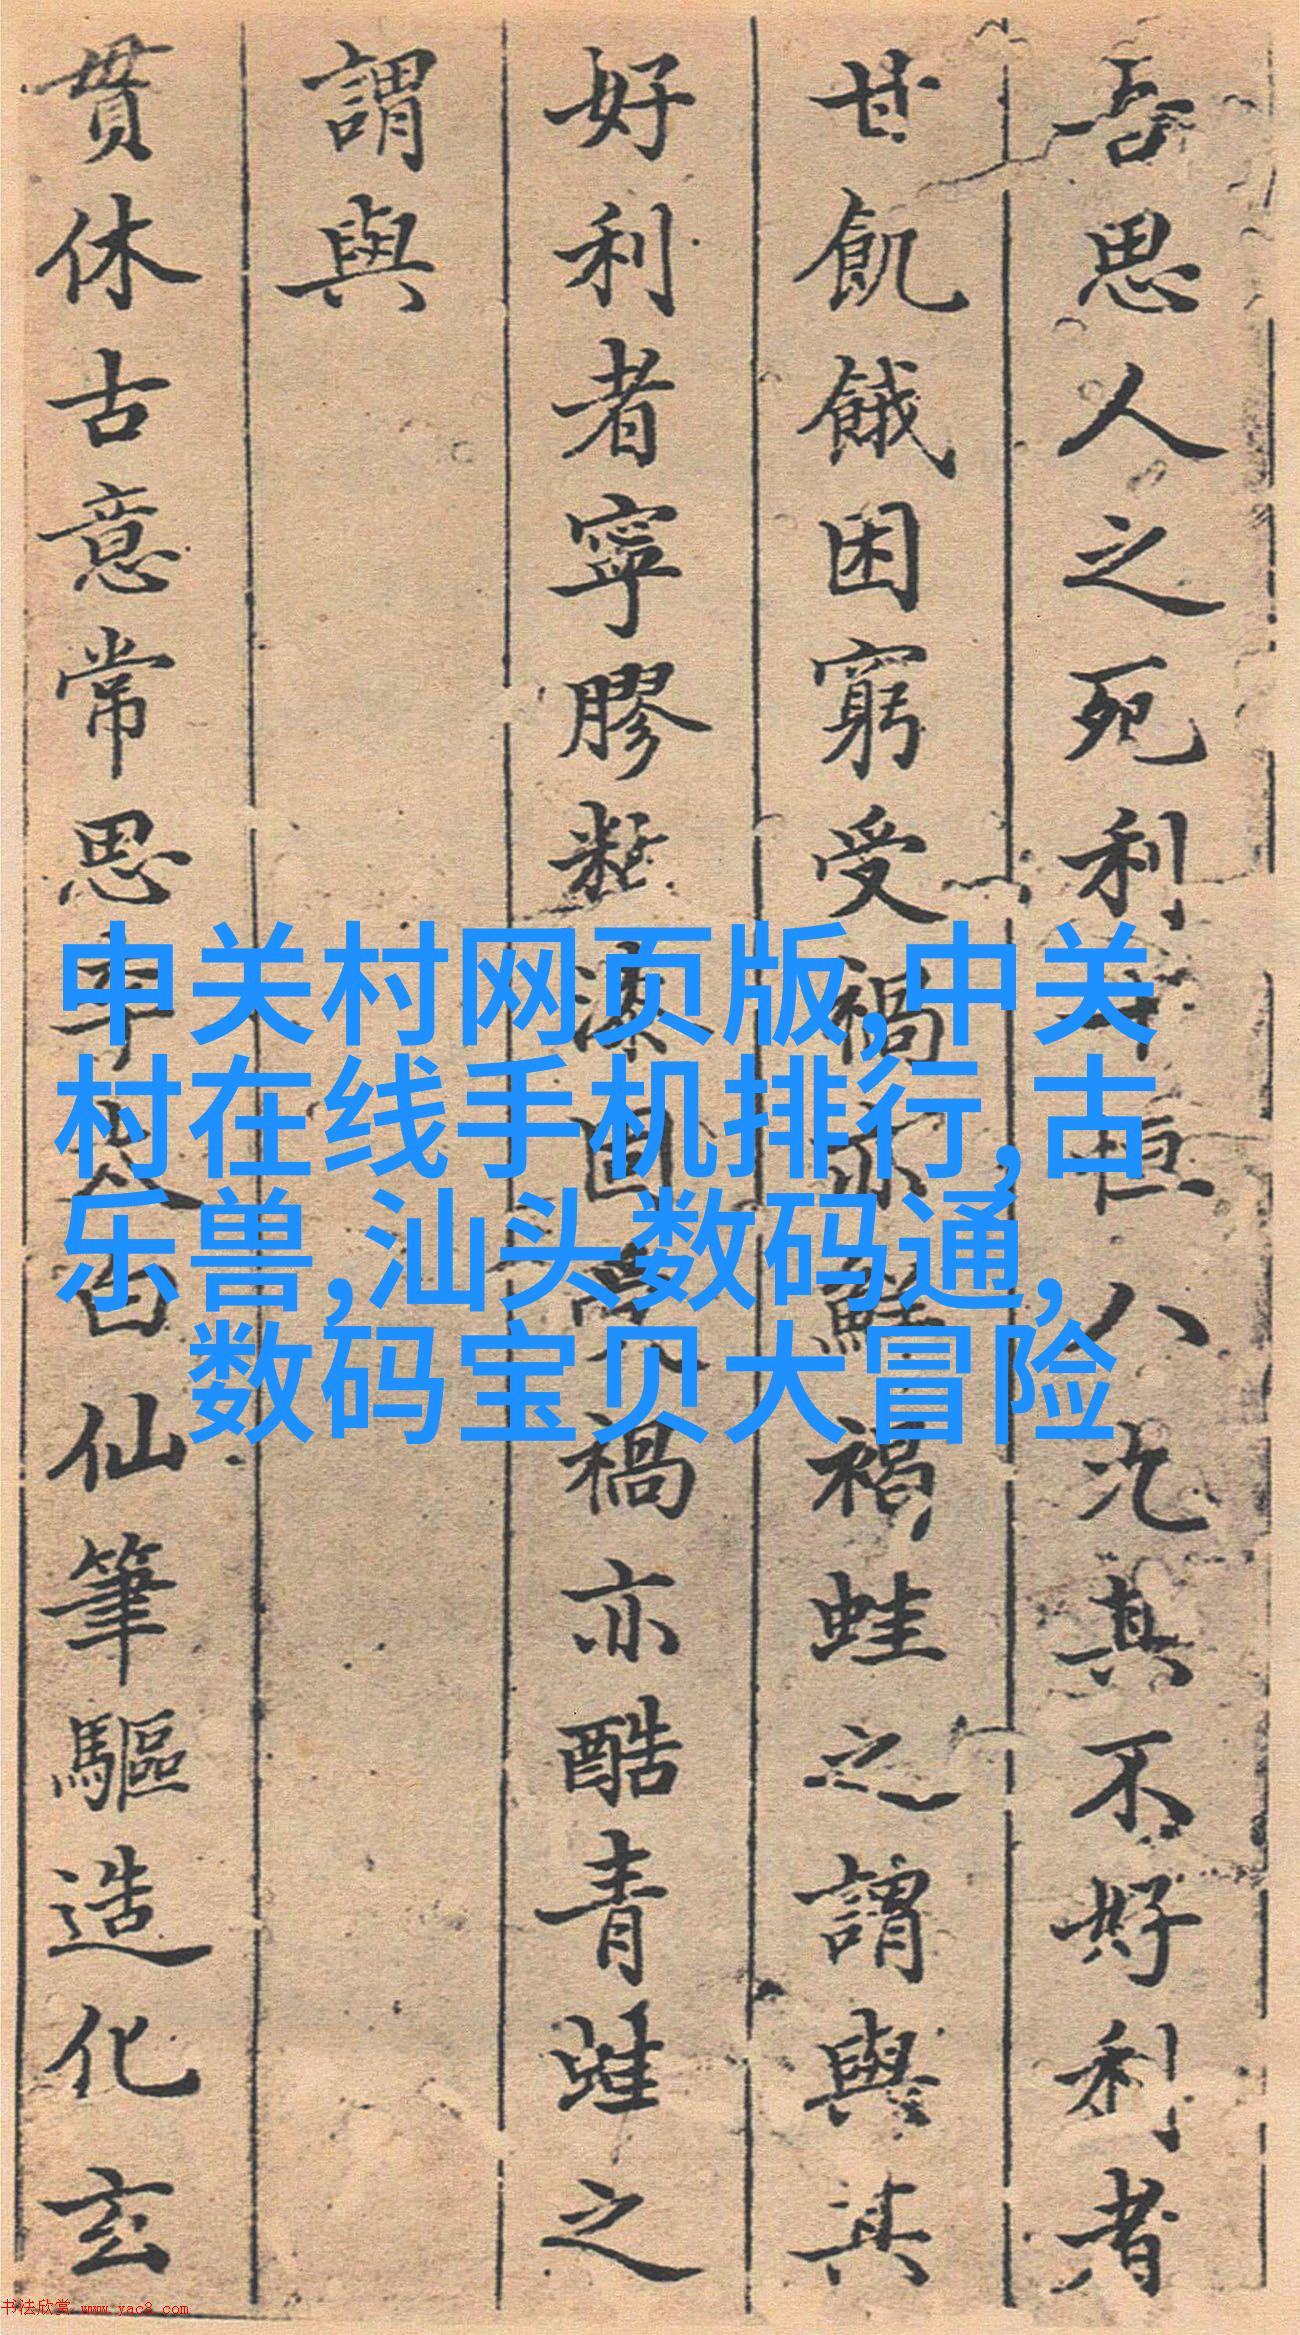 吾思人之死利十恒八九其不好利者
甘飢餓困窮受禍亦鮮禍蛙之謂與其
好利者寧膠粘漆固其禍亦酷青蛙之
謂與
貫休古意常思李太白仙筆驅造化玄
中关村网页版,中关
村在线手机排行,古
乐兽,汕头数码通,
数码宝贝大冒险
书法欣赏 www.yac8.com